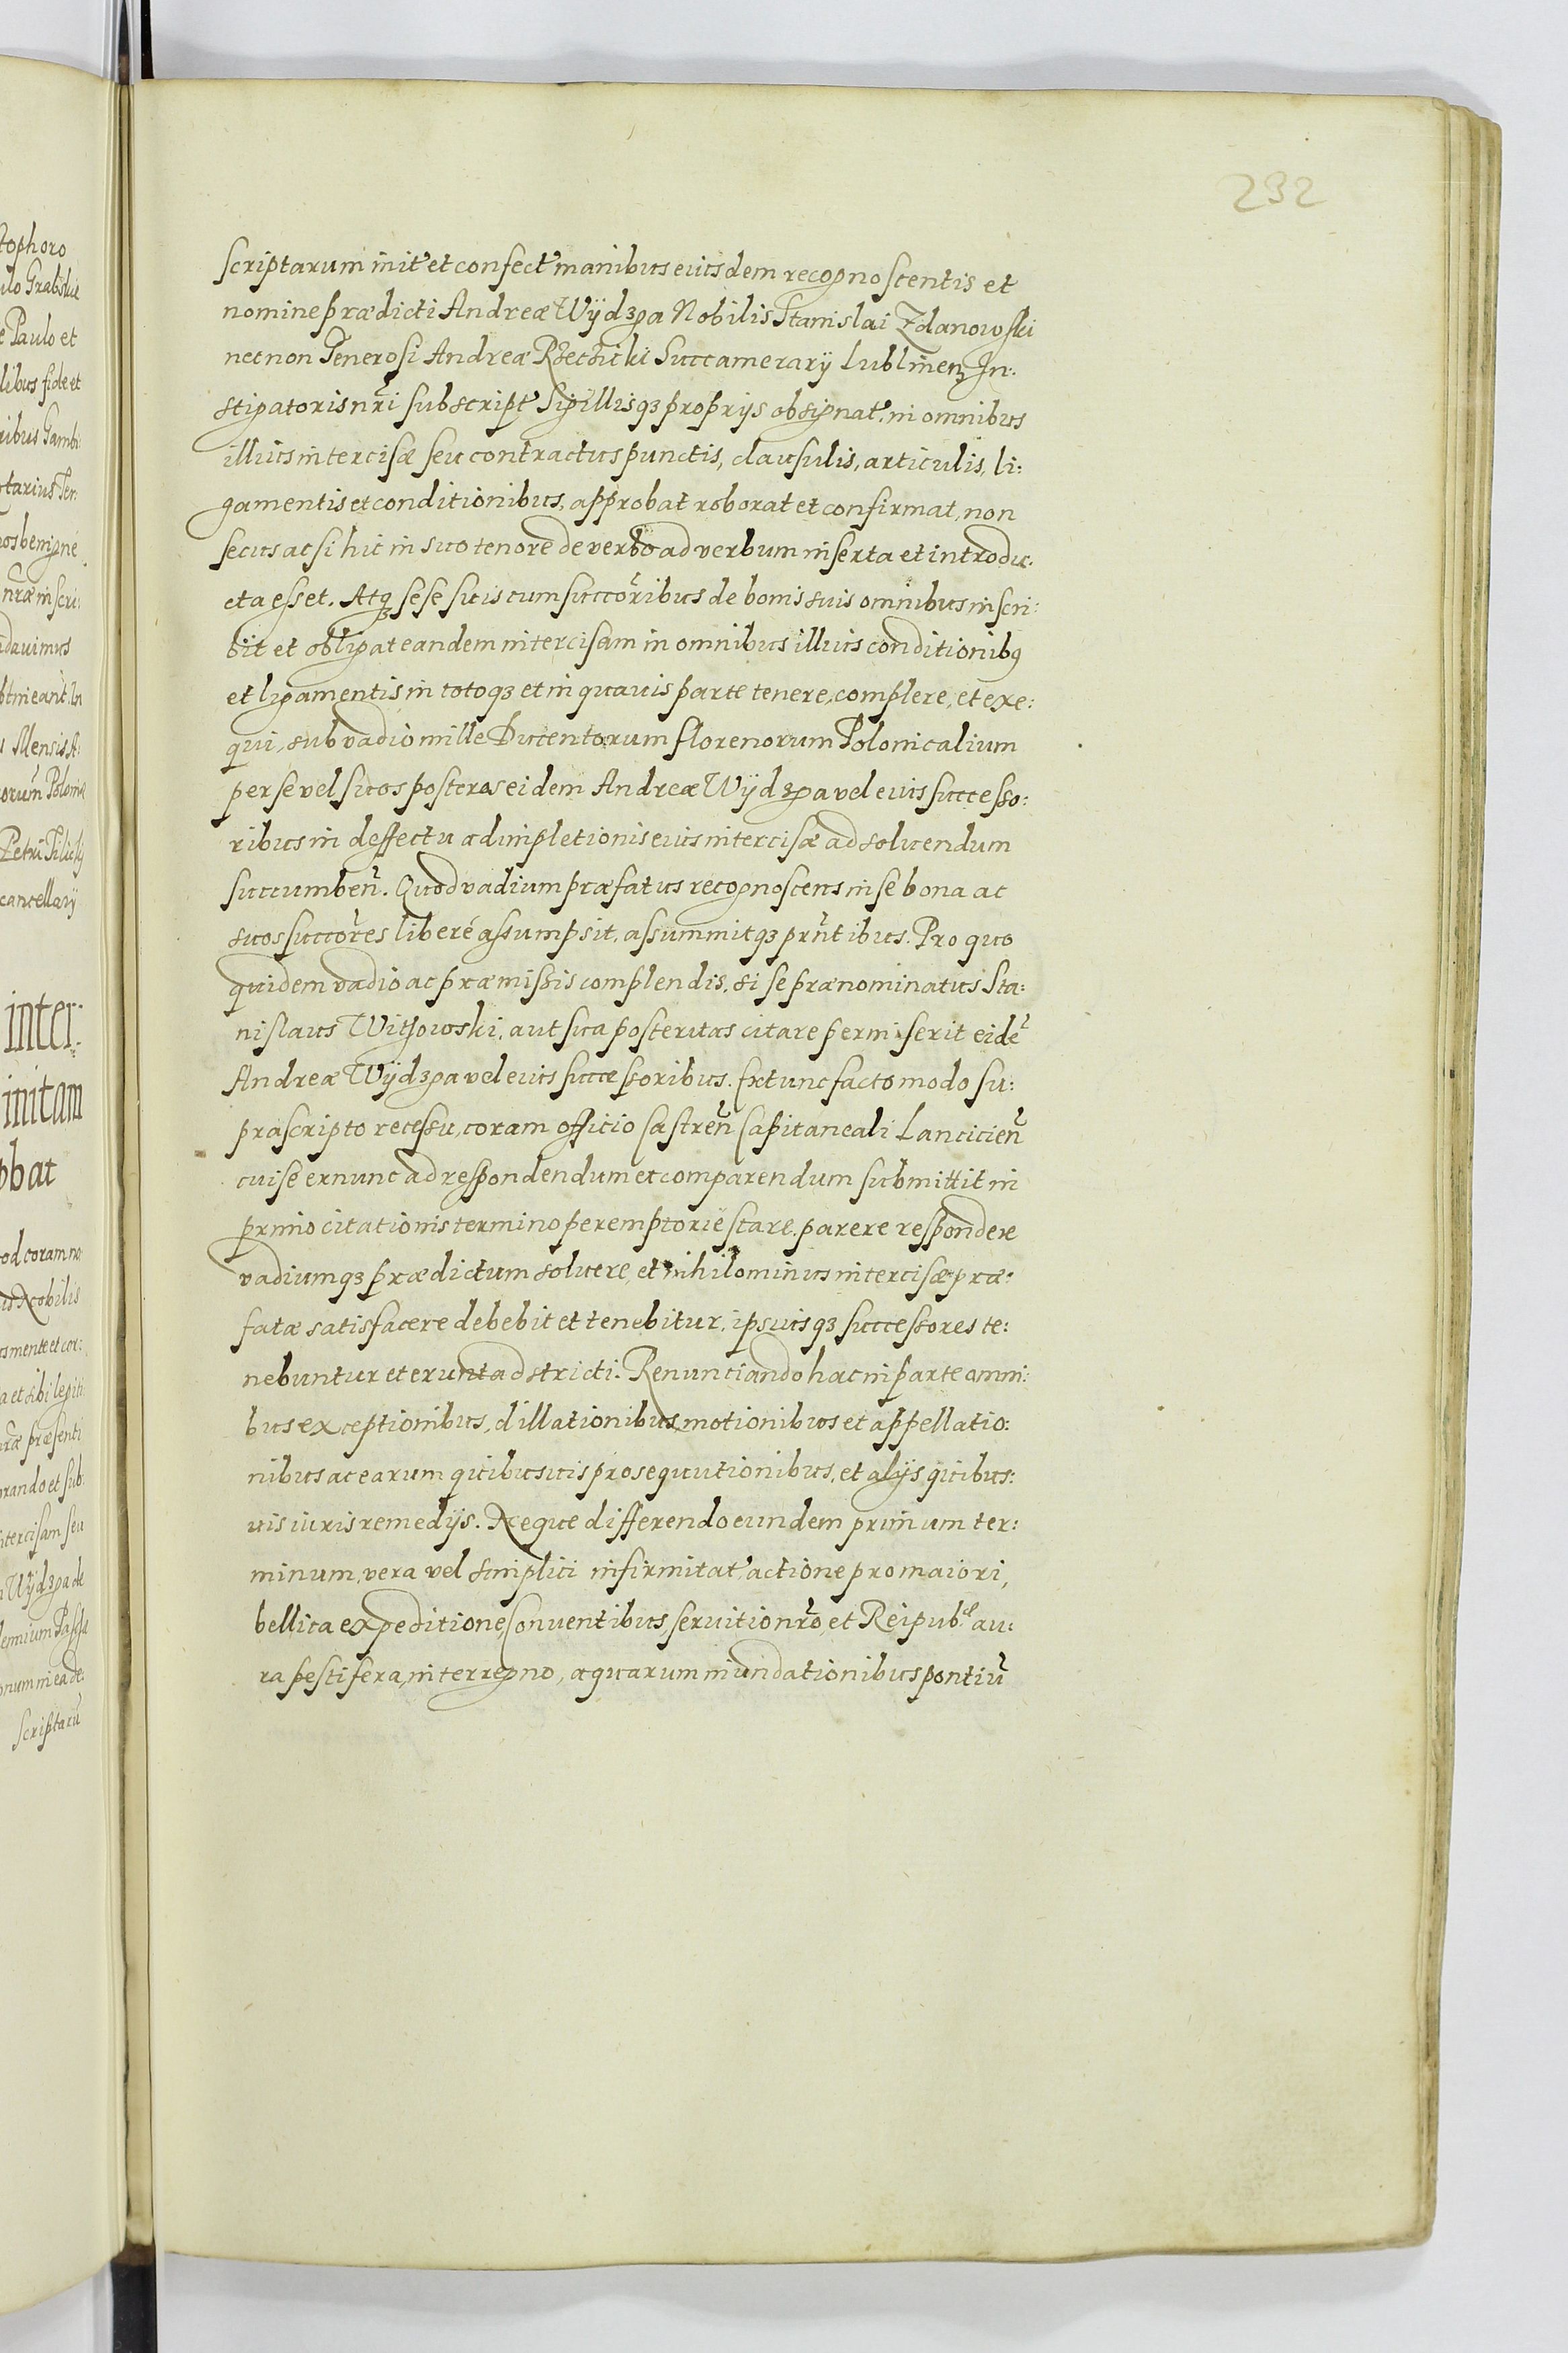 232
scriptarum init' et confect' manibus eiusdem recognoscentis et
nomine prædicti Andreæ Wÿdzga Nobilis Stanislai Zdanowski
necnon Generosi Andreæ Rzeczicki Succamerarÿ Lublinen In:
stigatoris nri subscript' Sigillisqз proprÿs obsignat', in omnibus
illius intercisæ seu contractus punctis, clausulis, articulis, li:
gamentis et conditionibus, approbat roborat et confirmat, non
secus ac si hic in suo tenore de verbo ad verbum inserta et introdu:
cta esset. Atqз sese suis cum succoribus de bonis suis omnibus inscri:
bit et obligat eandem intercisam in omnibus illius conditionibꝯ
et ligamentis in totoqз et in quauis parte tenere, complere, et exe:
qui, sub vadio mille Ducentorum florenorum Polonicalium
per se vel suos posteros eidem Andreæ Wÿdzga vel eius successo:
ribus in deffectu adimpletionis eius intercisæ ad soluendum
succumben. Quod vadium præfatus recognoscens in se bona ac
suos succores liberé assumpsit, assummitqз prntibus. Pro quo
quidem vadio ac præmissis complendis, si se prænominatus Sta:
nislaus Witowski, aut sua posteritas citare permiserit eidē
Andreæ Wÿdzga vel eius successoribus. Extunc facto modo su:
prascripto recessu, coram officio Castren Capitaneali Lancicien
cui se exnunc ad respondendum et comparendum submittit in
primo citationis termino peremptorie stare, parere respondere
vadiumqз prædictum soluere, et nihilominus intercisæ præ:
fatæ satisfacere debebit et tenebitur, ipsiusqз successores te:
nebuntur et erunt adstricti. Renunciando hac in parte omni:
bus exceptionibus, dillationibus, motionibus et appellatio:
nibus ac earum quibusuis prosequutionibus, et alÿs quibus:
uis iuris remedÿs. Neque differendo eundem primum ter:
minum, vera vel simplici infirmitat' actione pro maiori,
bellica expeditione, Conuentibus, seruitio nro, et Reipub. au:
ra pestifera, interregno, aquarum inundationibus pontiū